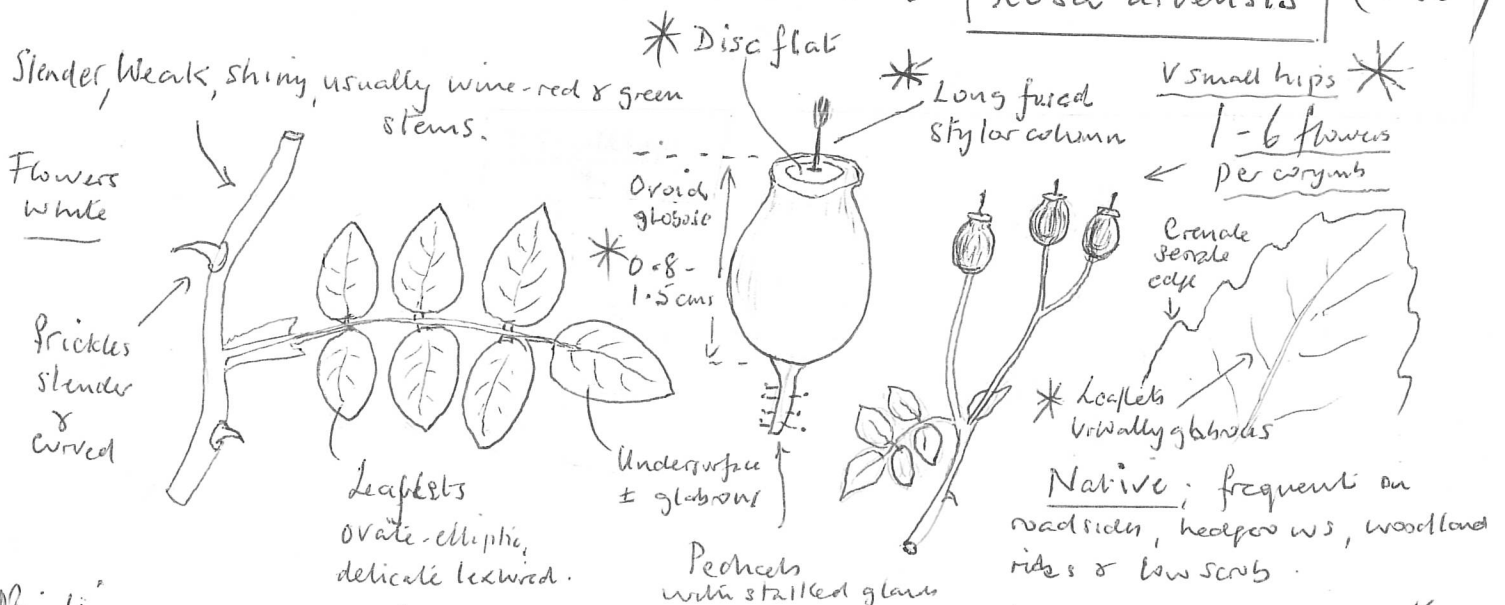 Rosa arvensis
Slender, Weak, shiny, usually wine-red & green
stems.
Flowers
white
Prickles
slender
&
curved
Leaflets
ovate-elliptic,
delicate textured.
Undersurface
± glabrous
* Disc flat
* Long fused
stylar column
Ovoid
globose
* 0.8-
1.5cms
Pedicels
with stalked glands
V small hips *
1-6 flowers
per corymb
Crenate
serrate
edge
* Leaflets
Usually glabrous
Native; frequent on
roadsides, hedgerows, woodland
rides & low scrub.